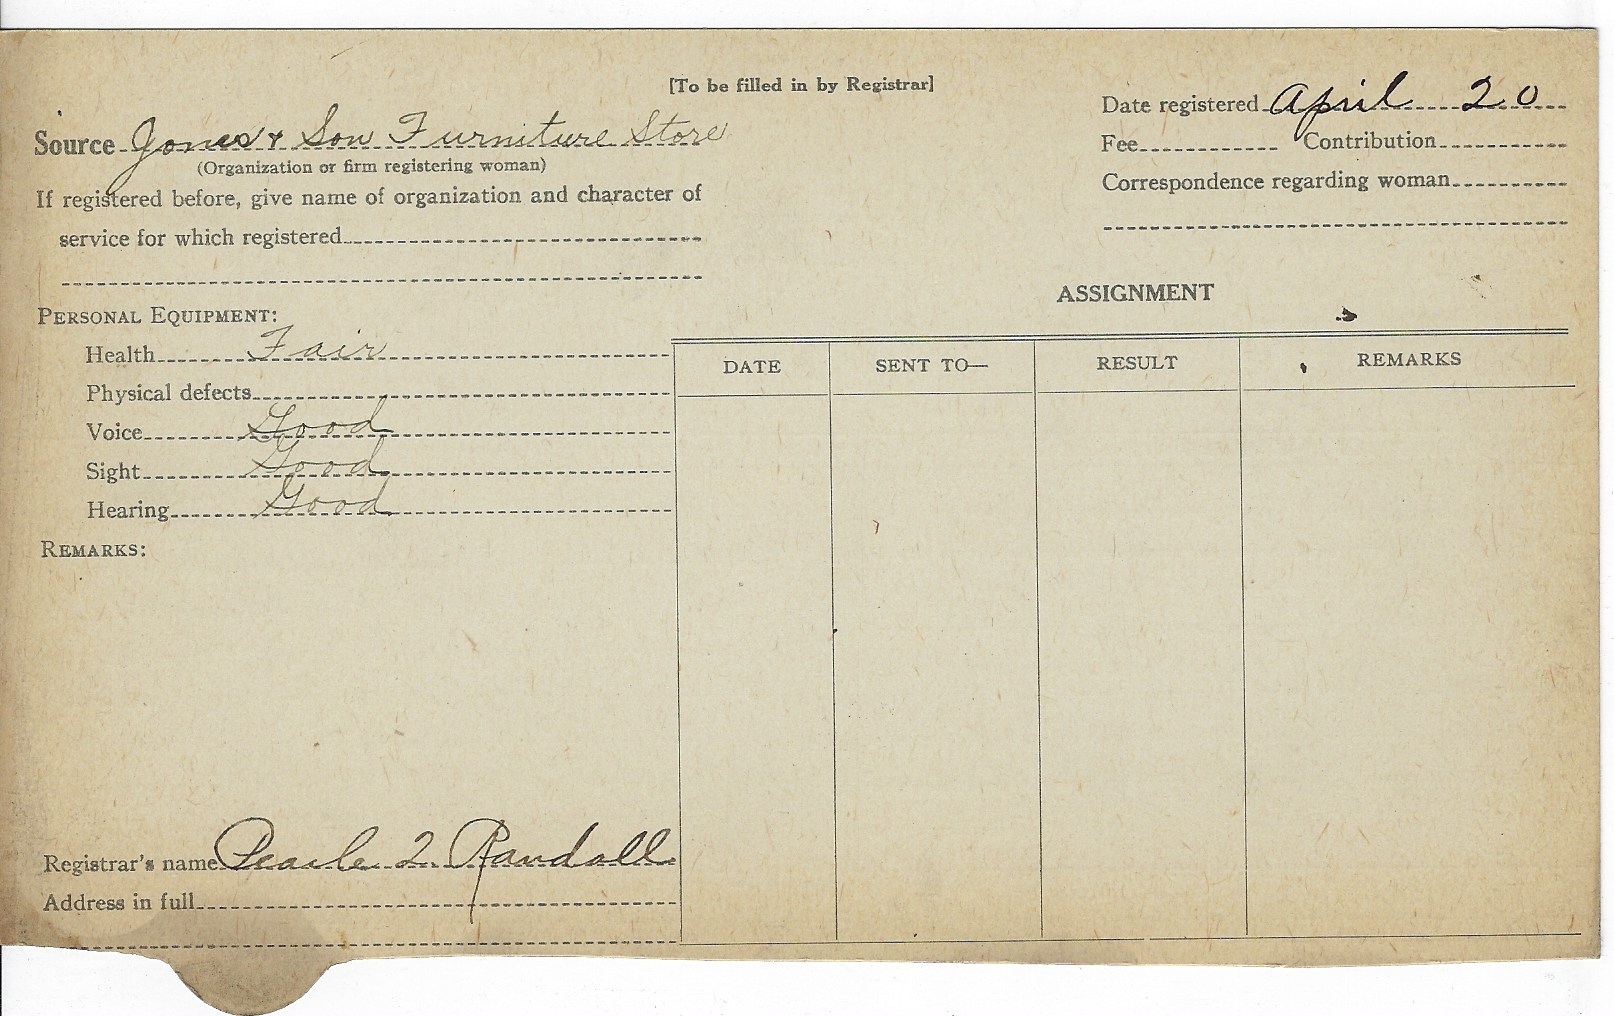 [To be filled in by Registrar]
Date registered April 20
Source Jones & Son Furniture Store
(Organization or firm registering woman)
Fee Contribution
If registered before, give name of organization and character of
service for which registered
Correspondence regarding woman
ASSIGNMENT
PERSONAL EQUIPMENT:
Health Fair
Physical defects
Voice Good
Sight Good
Hearing Good
REMARKS:
DATE SENT TO— RESULT REMARKS
Registrar's name Pearle Randall
Address in full